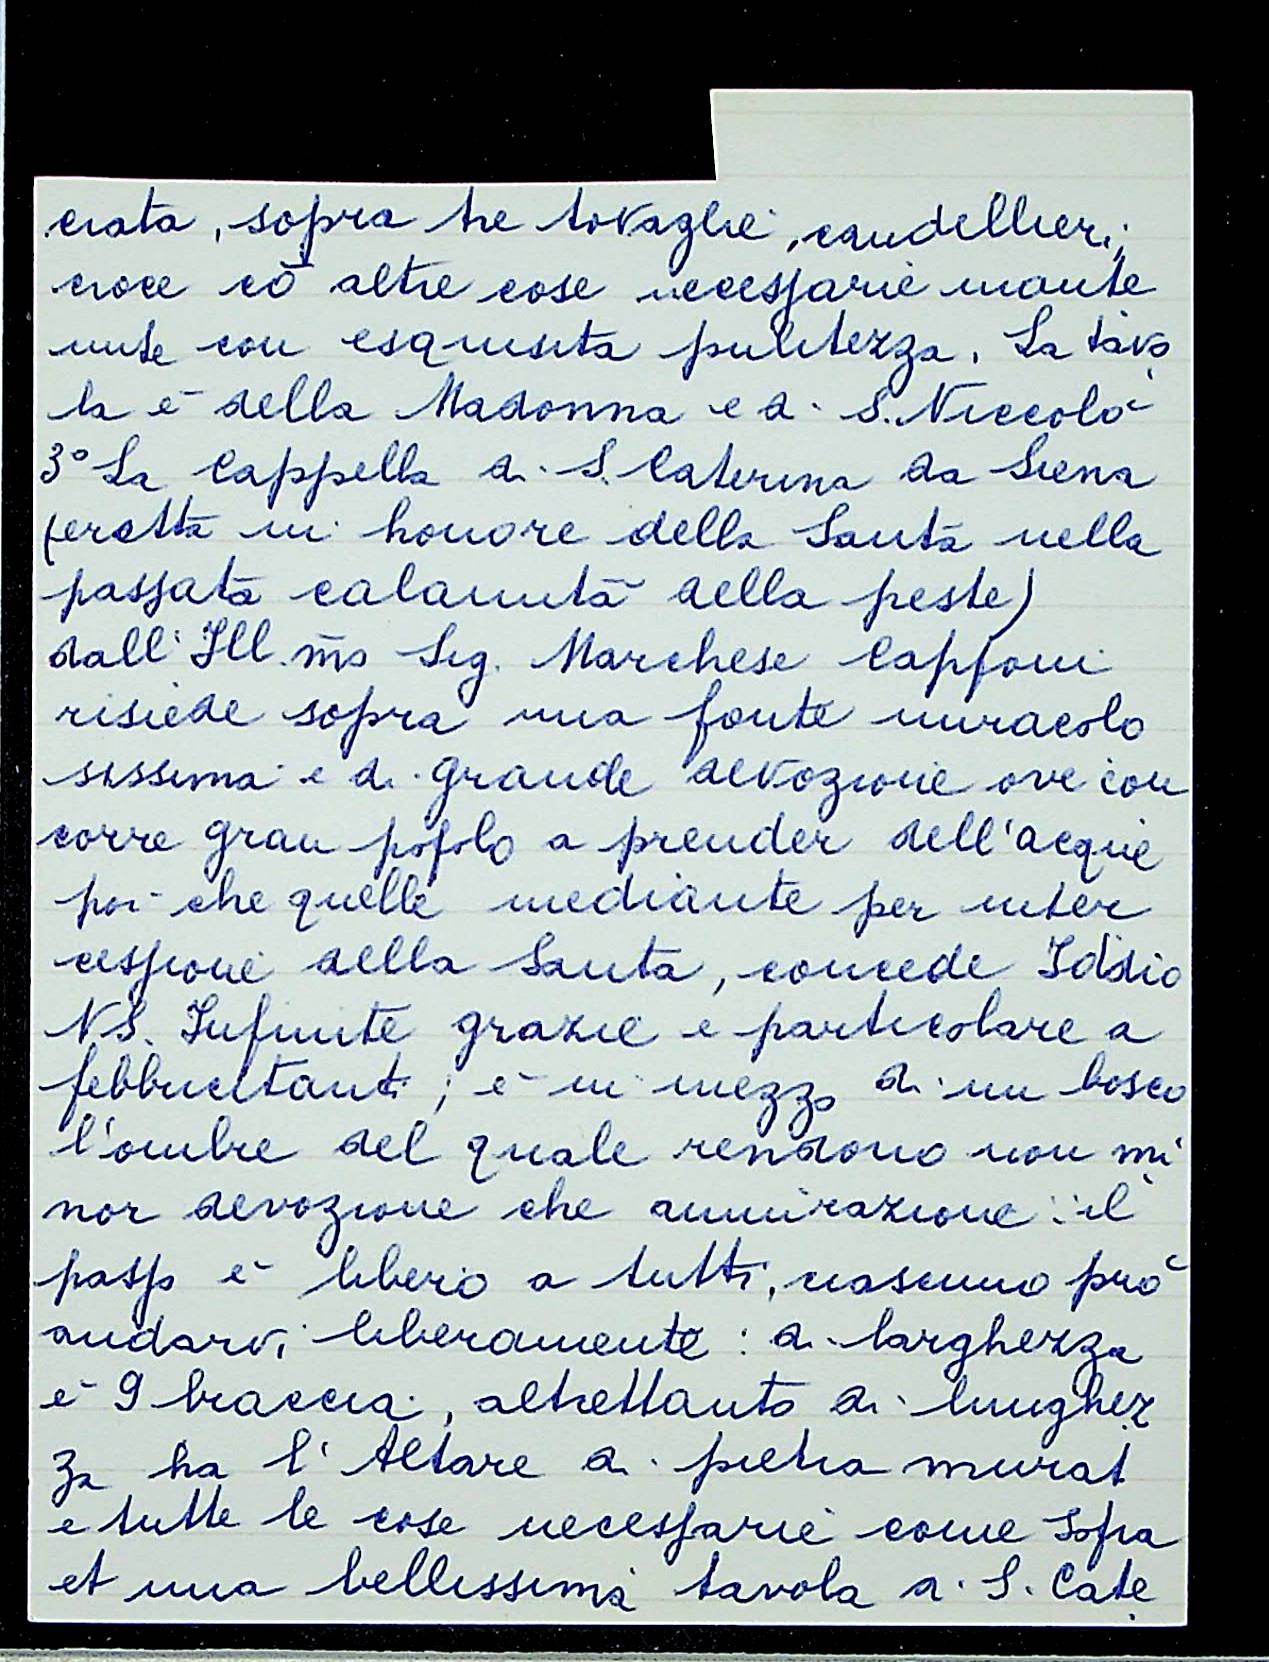 ciata, sopra tre tovaglie, candellieri,
croce cō altre cose necessarie mante
nute con esquisita pulitezza. La tavo
la è della Madonna e di S. Niccolò
3° La Cappella di S. Caterina da Siena
(eretta in honore della Santa nella
passata calamità della peste)
dall'Ill.mo Sig. Marchese Capponi
risiede sopra una fonte miracolo
sissima e di grande devozione ove con
corre gran popolo a prender dell'acque
poi che quelle mediante per inter
cessione della Santa, concede Iddio
N.S. Infinite grazie e particolare a
febbricitanti; è in mezzo di un bosco
l'ombre del quale rendono non mi
nor devozione che ammirazione: il
passo è libero a tutti, ciascuno può
andarvi liberamente: di larghezza
è 9 braccia, altrettanto di lunghez
za ha l'Altare di pietra murat
e tutte le cose necessarie come sopra
et una bellissima tavola di S. Cate